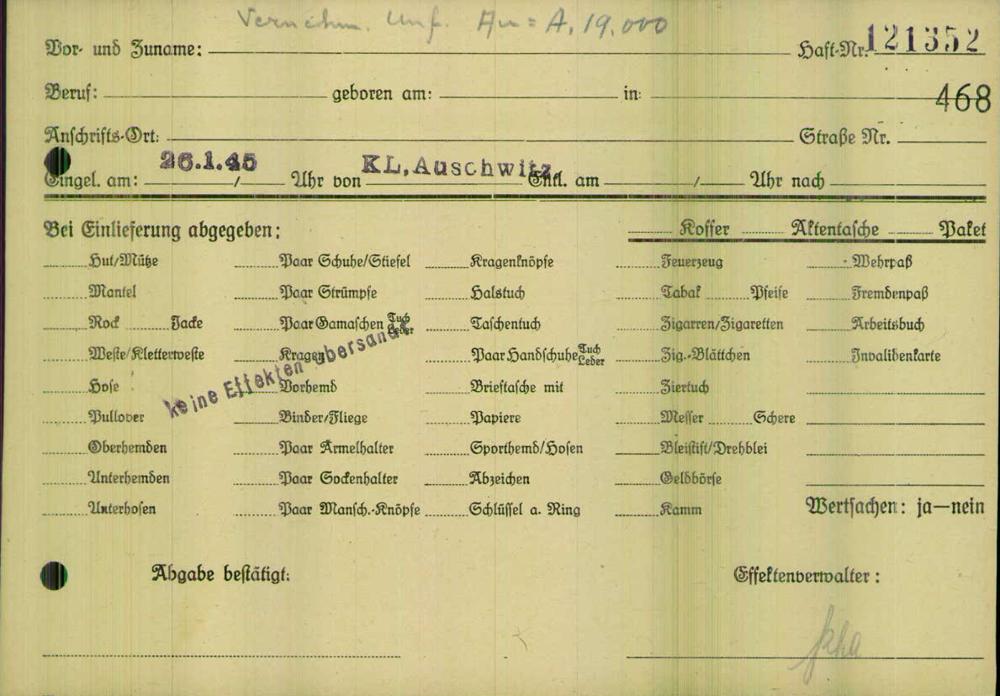 Vernehm. Unf. Au = A. 19.000
Vor- und Zuname: Haft-Nr. 121352
Beruf: geboren am: in: 468
Anschrifts-Ort: Straße Nr.
Eingel. am: 26.1.45 / Uhr von KL, Auschwitz Entl. am / Uhr nach
Bei Einlieferung abgegeben: Koffer Aktentasche Paket
Hut/Mütze Paar Schuhe/Stiefel Kragenknöpfe Feuerzeug Wehrpaß
Mantel Paar Strümpfe Halstuch Tabak Pfeife Fremdenpaß
Rock Jacke Paar Gamaschen Tuch Leder Taschentuch Zigarren/Zigaretten Arbeitsbuch
Weste/Kletterweste Kragen Paar Handschuhe Tuch Leder Zig.-Blättchen Invalidenkarte
keine Effekten übersandt
Hose Vorhemd Brieftasche mit Ziertuch
Pullover Binder/Fliege Papiere Messer Schere
Oberhemden Paar Ärmelhalter Sporthemd/Hosen Bleistift/Drehblei
Unterhemden Paar Sockenhalter Abzeichen Geldbörse
Unterhosen Paar Mansch.-Knöpfe Schlüssel a. Ring Kamm Wertsachen: ja—nein
Abgabe bestätigt: Effektenverwalter: